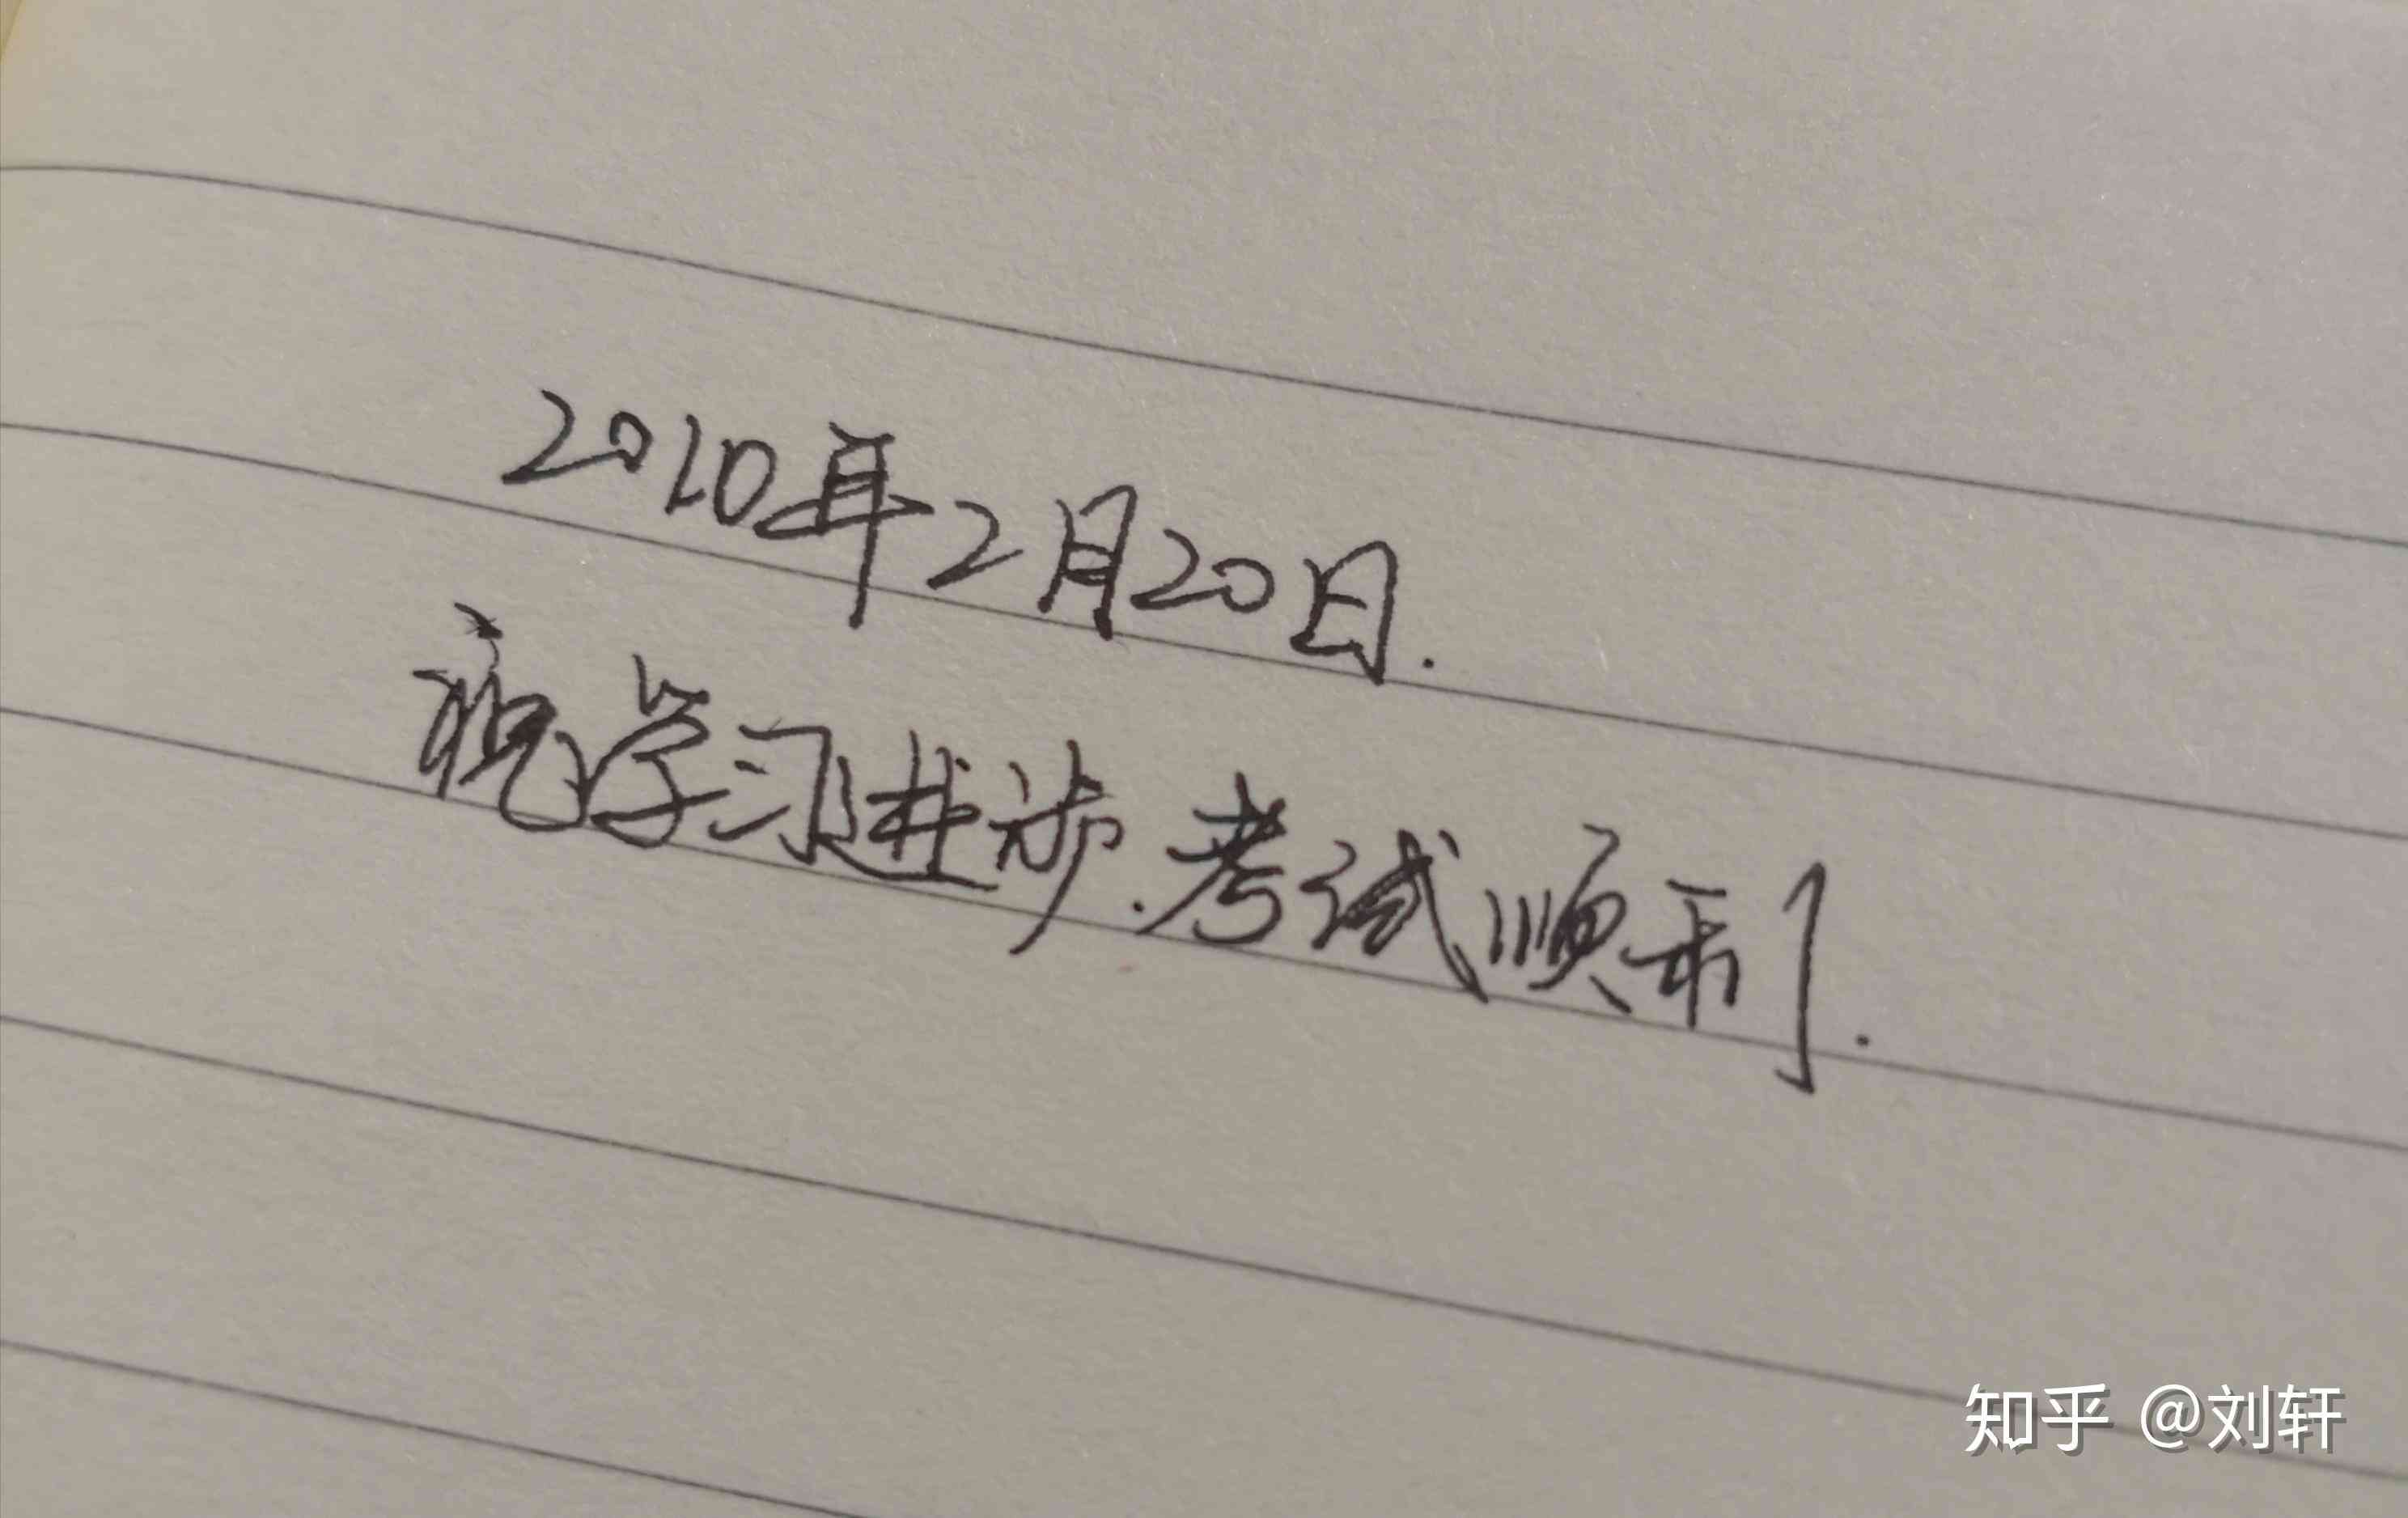 2010年2月20日.
祝学习进步.考试顺利.
知乎 @刘轩